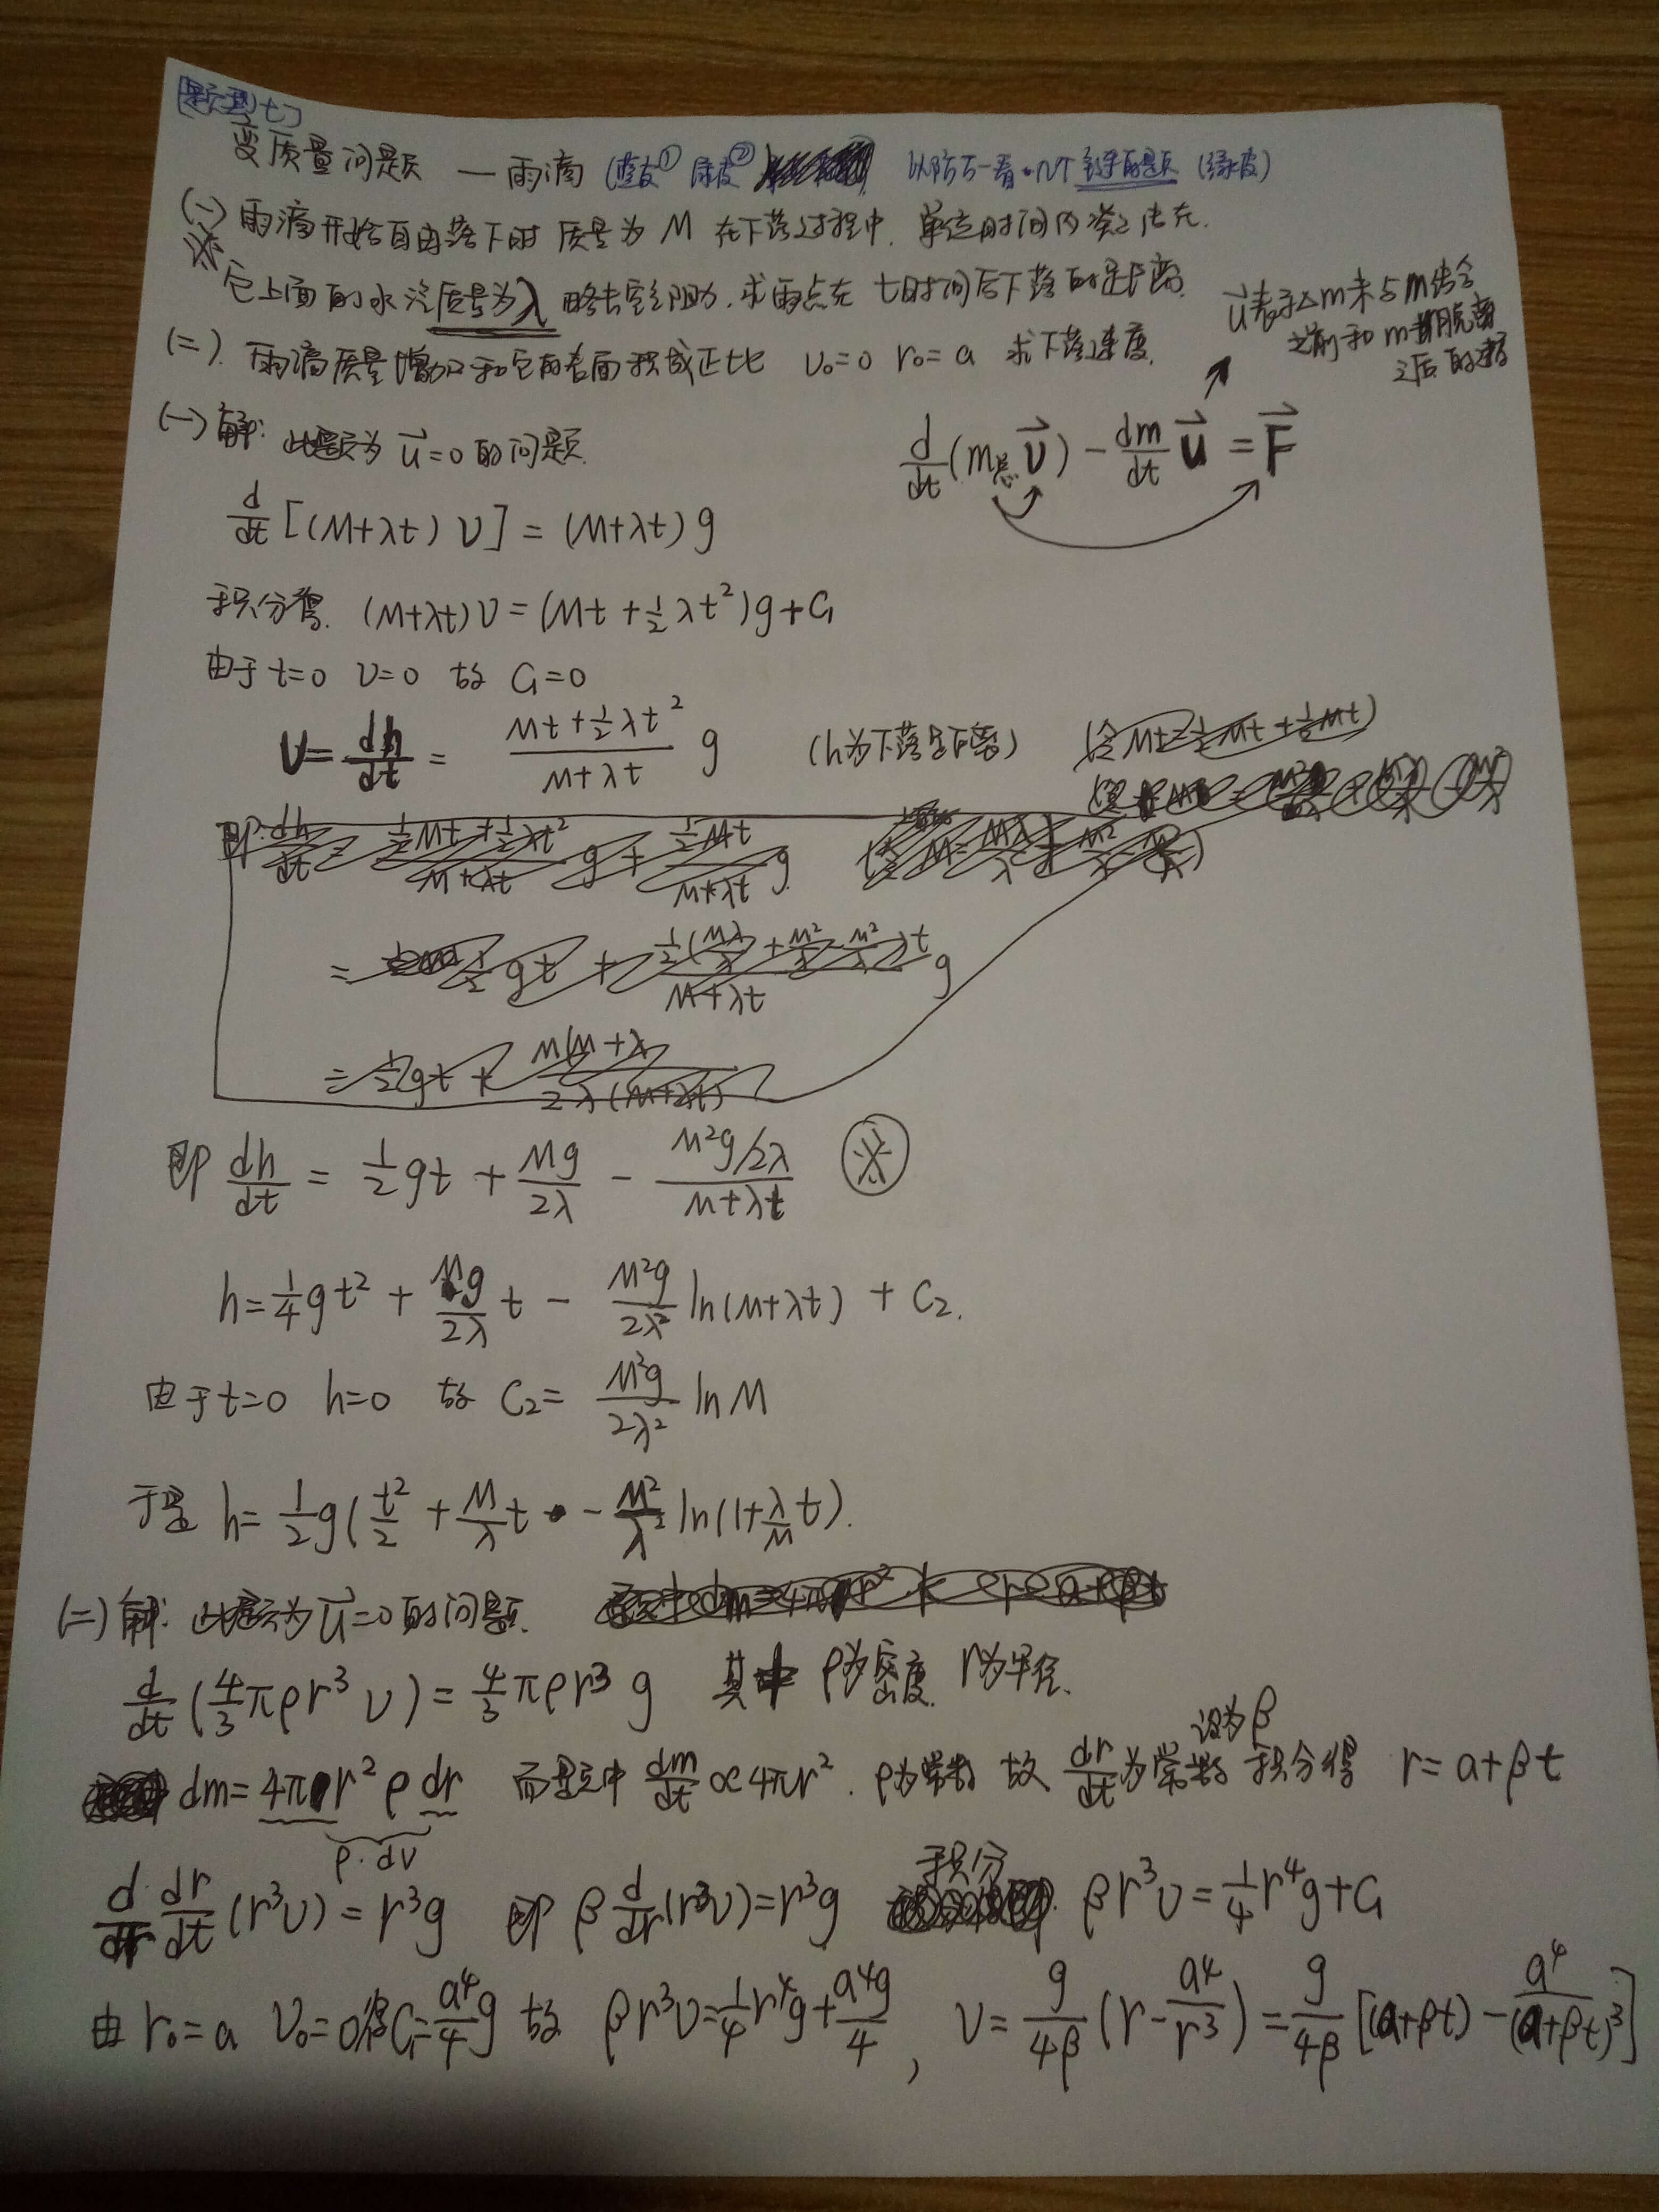 [题型七]
变质量问题 — 雨滴 (蓝皮① 绿皮② 以防万一看 (绿皮)
(一) 雨滴开始自由落下时 质量为 M 在下落过程中. 单位时间内凝结在
※ 它上面的水汽质量为λ 略去空气阻力. 求雨点在 t时间后下落的距离.
u⃗表示Δm未与m结合
之前和m脱离
之后的速度
(二). 雨滴质量增加和它的表面积成正比 v₀=0 r₀=a 求下落速度.
(一) 解: 此题为 u⃗=0 的问题.
d/dt (m总 v⃗) - dm/dt u⃗ = F⃗
d/dt [(M+λt) v] = (M+λt) g
积分得. (M+λt)v = (Mt + ½λt²)g + C₁
由于 t=0 v=0 故 C₁=0
v = dh/dt = (Mt + ½λt²)/(M+λt) g (h为下落距离)
即 dh/dt = ½gt + Mg/2λ - (M²g/2λ)/(M+λt) ※
h = ¼gt² + Mg/2λ t - M²g/2λ² ln(M+λt) + C₂.
由于 t=0 h=0 故 C₂ = M²g/2λ² ln M
于是 h = ½g(t²/2 + M/λ t - M²/λ² ln(1+λ/M t).
(二) 解: 此题为 u⃗=0 的问题.
d/dt (4/3 πρr³ v) = 4/3 πρr³ g 其中 ρ为密度. r为半径.
设为β
dm = 4πr² ρ dr 而题中 dm/dt ∝ 4πr². ρ为常数 故 dr/dt 为常数 积分得 r = a+βt
ρ·dV
d/dr dr/dt (r³v) = r³g 即 β d/dr (r³v) = r³g 积分 βr³v = ¼r⁴g + C₁
由 r₀=a v₀=0 得 C₁ = a⁴/4 g 故 βr³v = ¼r⁴g + a⁴g/4 , v = g/4β (r - a⁴/r³) = g/4β [(a+βt) - a⁴/(a+βt)³]